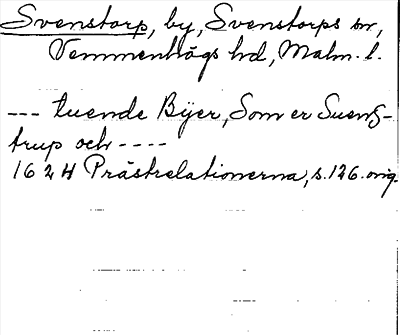 Svenstorp, by, Svenstorps sn,
Vemmenhögs hd, Malm. l.
--- tuende Bÿer, Som er Suens-
trup och ----
1624 Prästrelationerna, s. 126. orig.